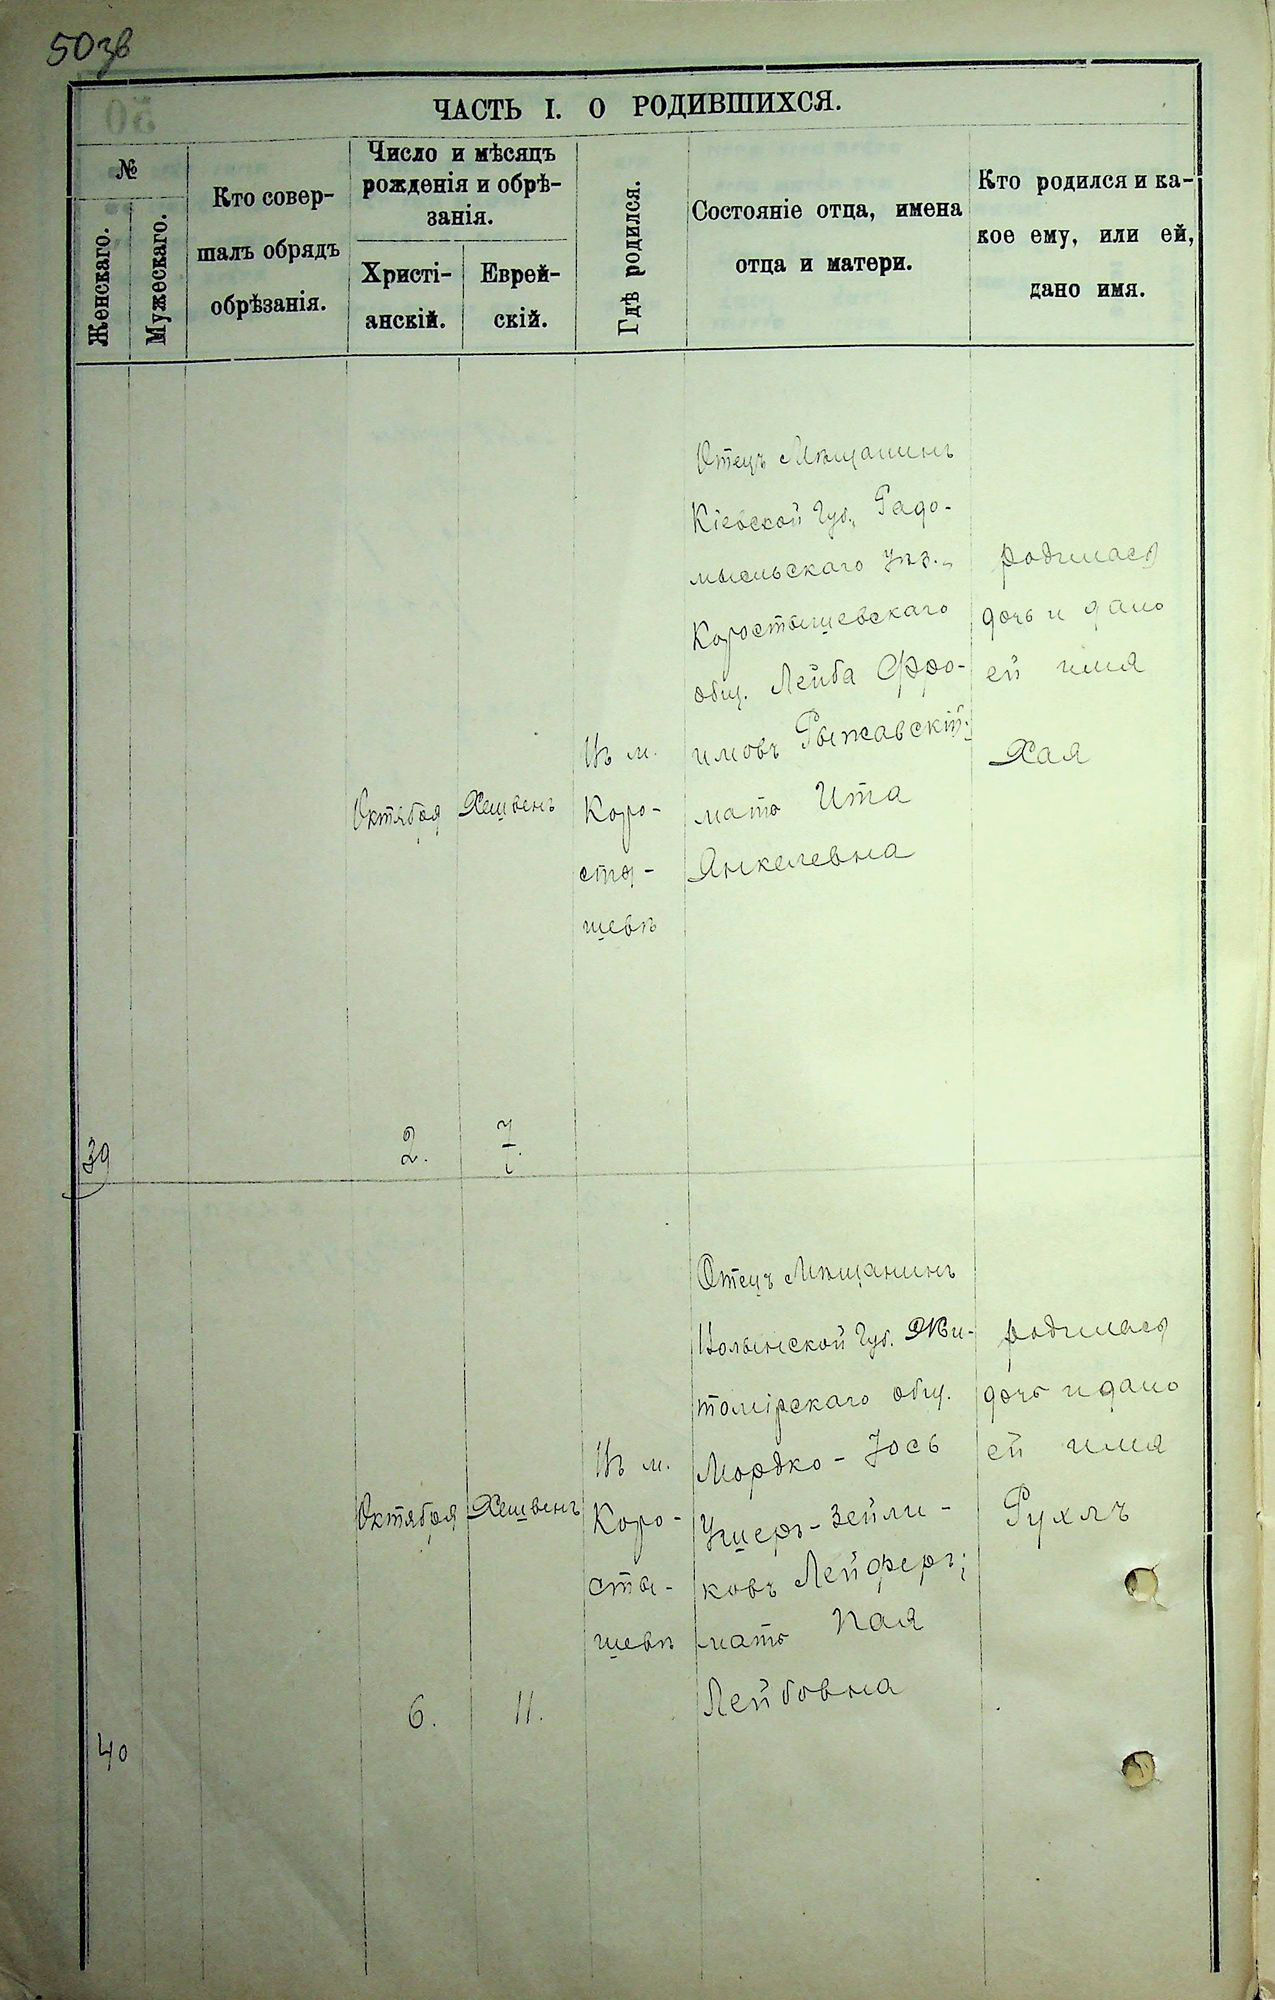 50 зв
ЧАСТЬ I. О РОДИВШИХСЯ.
№
Женскаго.
Мужескаго.
Кто совер-
шалъ обрядъ
обрѣзанія.
Число и мѣсяцъ
рожденія и обрѣ-
занія.
Христі-
анскій.
Еврей-
скій.
Гдѣ родился.
Состояніе отца, имена
отца и матери.
Кто родился и ка-
кое ему, или ей,
дано имя.
39
Октября
2.
Хешвенъ
7
Въ м.
Коро-
сты-
шевѣ
Отецъ Мѣщанинъ
Кіевской Губ., Радо-
мысльскаго уѣз.,
Коростышевскаго
общ. Лейба Фро-
имовъ Рыжавскій;
мать Ита
Янкелевна
родилась
дочь и дано
ей имя
Хая
40
Октября
6.
Хешвенъ
11.
Въ м.
Коро-
сты-
шевѣ
Отецъ Мѣщанинъ
Волынской Губ. Жи-
томірскаго общ.
Мордко-Іось
Ушеръ-Зейли-
ковъ Лейферъ;
мать Пая
Лейбовна
родилась
дочь и дано
ей имя
Рухль